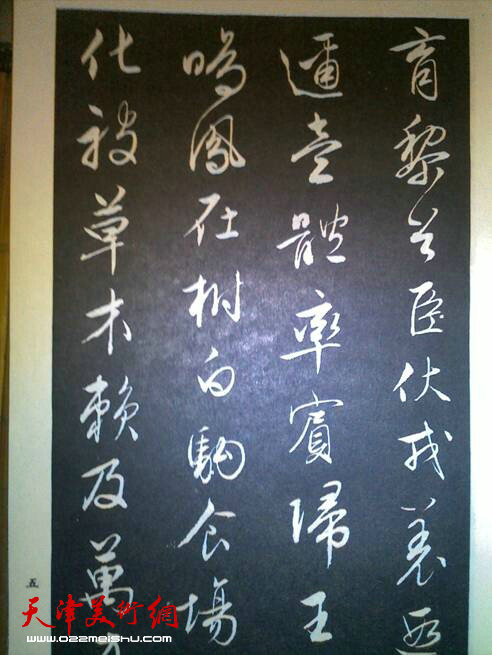 育黎首臣伏戎羌遐
邇壹體率賓歸王
鳴鳳在樹白駒食場
化被草木賴及萬
五
天津美術網
www.022meishu.com